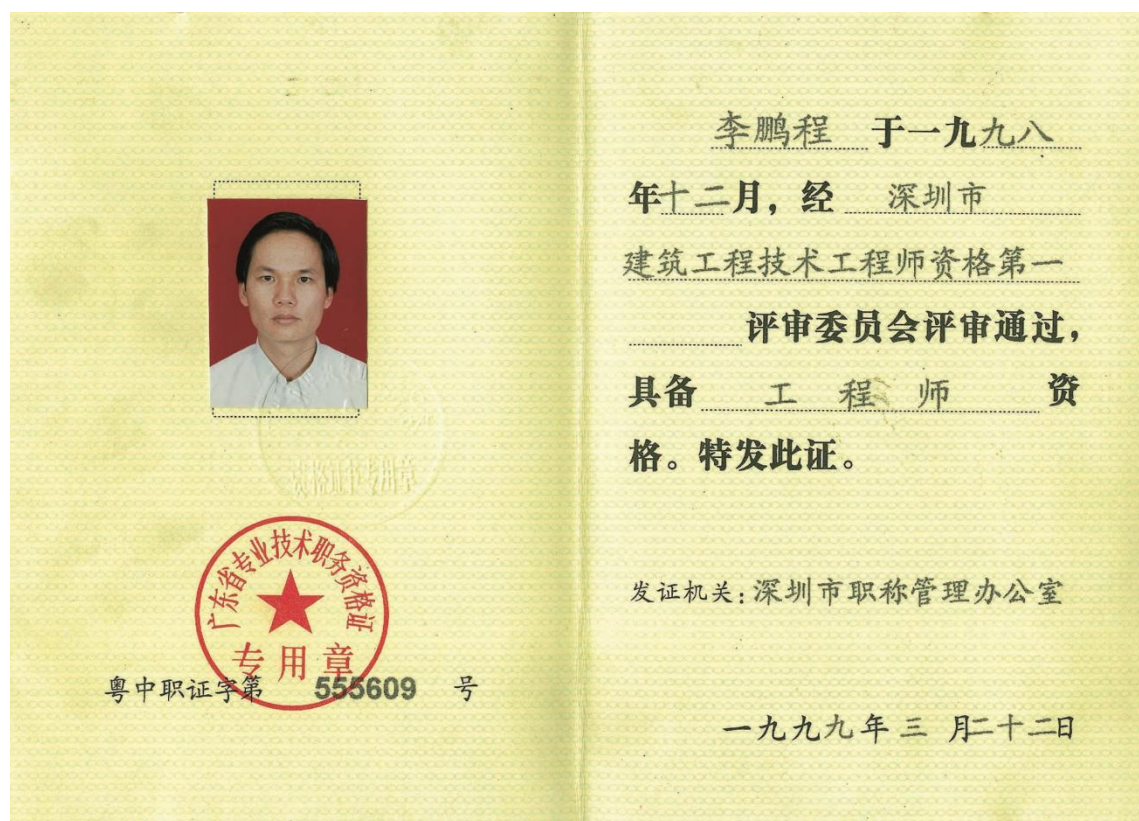 资格证书专用章
广东省专业技术职务资格证
专用章
粤中职证字第 555609 号
李鹏程 于一九九八
年十二月，经 深圳市
建筑工程技术工程师资格第一
评审委员会评审通过，
具备 工 程 师 资
格。特发此证。
发证机关：深圳市职称管理办公室
一九九九年三 月二十二日